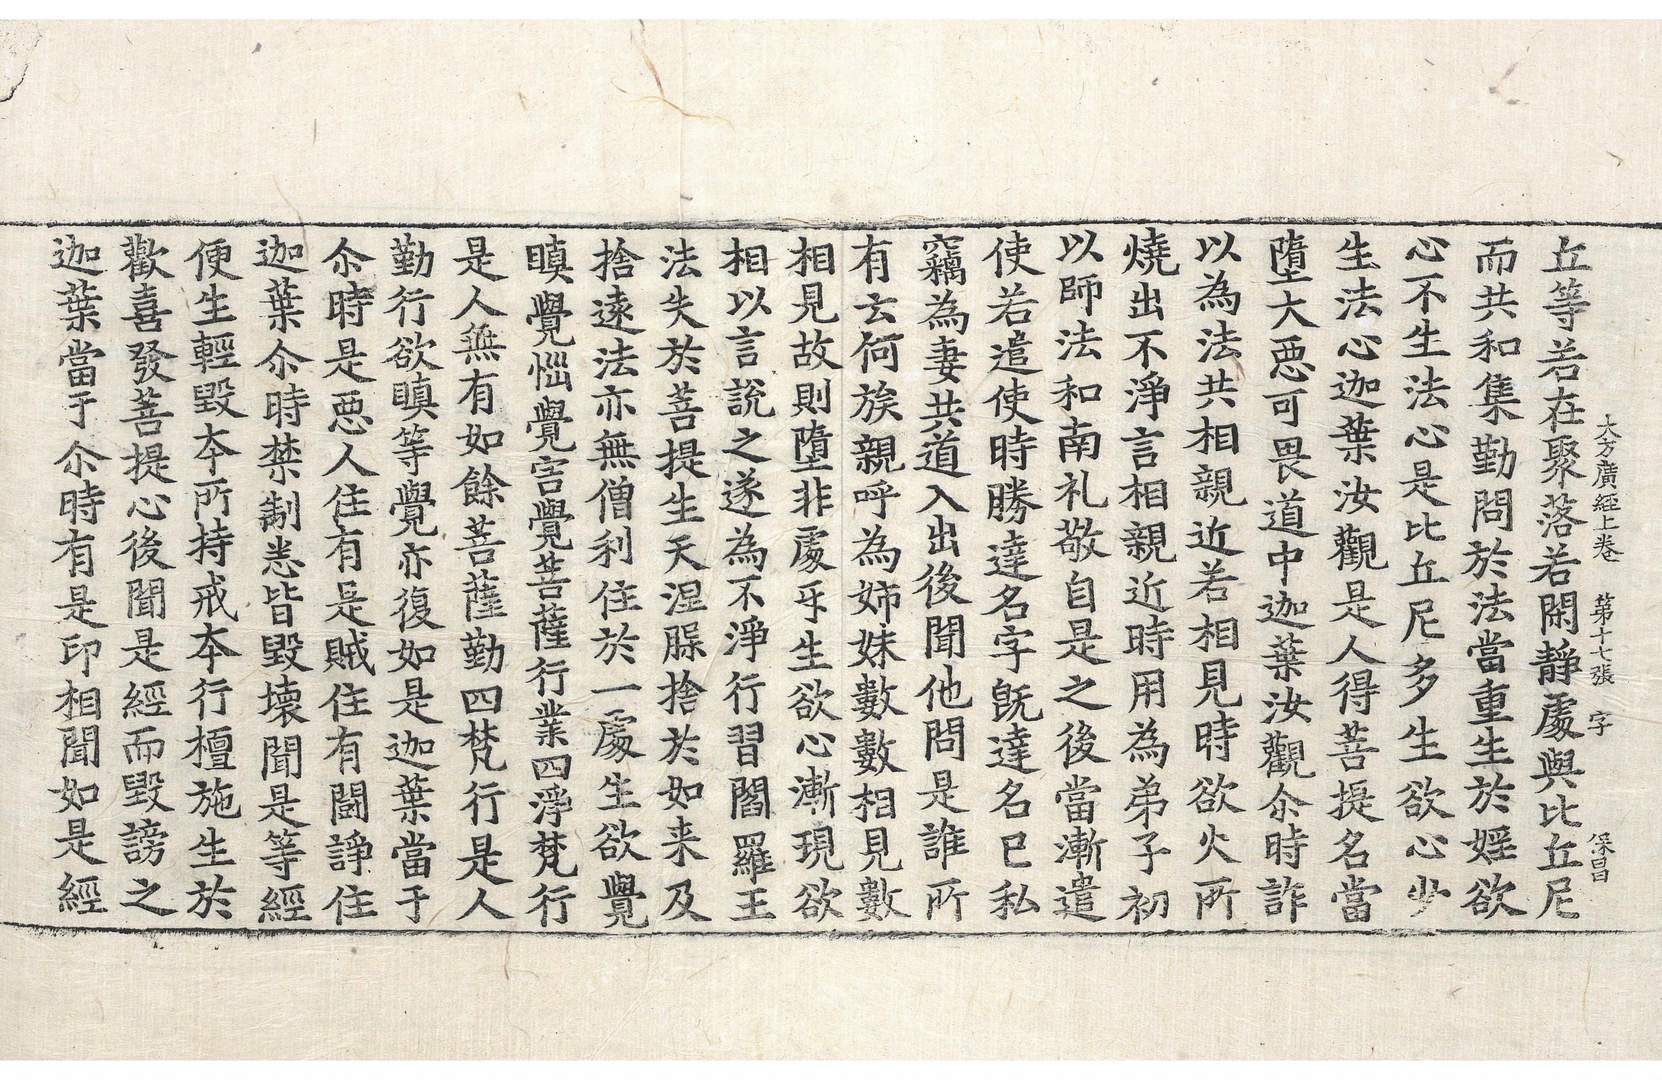 大方廣經上卷 第十七張 字 保昌
丘等若在聚落若閑靜處與比丘尼
而共和集勤問於法當重生於婬欲
心不生法心是比丘尼多生欲心少
生法心迦葉汝觀是人得菩提名當
墮大惡可畏道中迦葉汝觀尒時詐
以為法共相親近若相見時欲火所
燒出不淨言相親近時用為弟子初
以師法和南礼敬自是之後當漸遣
使若遣使時勝達名字旣達名已私
竊為妻共道入出後聞他問是誰所
有云何族親呼為姉妹數數相見數
相見故則墮非處乐生欲心漸現欲
相以言說之遂為不淨行習閻羅王
法失於菩提生天涅槃捨於如来及
捨遠法亦無僧利住於一處生欲覺
瞋覺惱覺害覺菩薩行業四淨梵行
是人無有如餘菩薩勤四梵行是人
勤行欲瞋等覺亦復如是迦葉當于
尒時是惡人住有是賊住有鬪諍住
迦葉尒時禁制恚皆毀壞聞是等經
便生輕毀本所持戒本行檀施生於
歡喜發菩提心後聞是經而毀謗之
迦葉當于尒時有是印相聞如是經